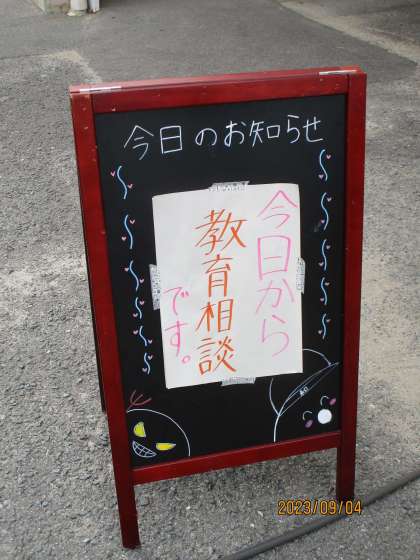 今日のお知らせ
今日から
教育相談
です。
2023/09/04